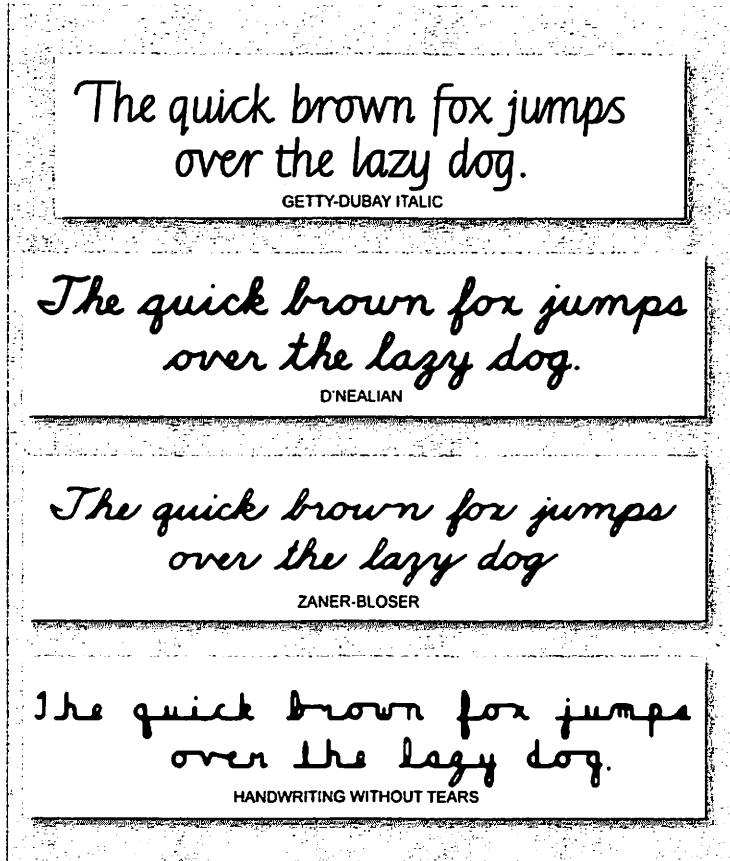 The quick brown fox jumps
over the lazy dog.
GETTY-DUBAY ITALIC
The quick brown fox jumps
over the lazy dog.
D'NEALIAN
The quick brown fox jumps
over the lazy dog
ZANER-BLOSER
The quick brown fox jumps
over the lazy dog.
HANDWRITING WITHOUT TEARS